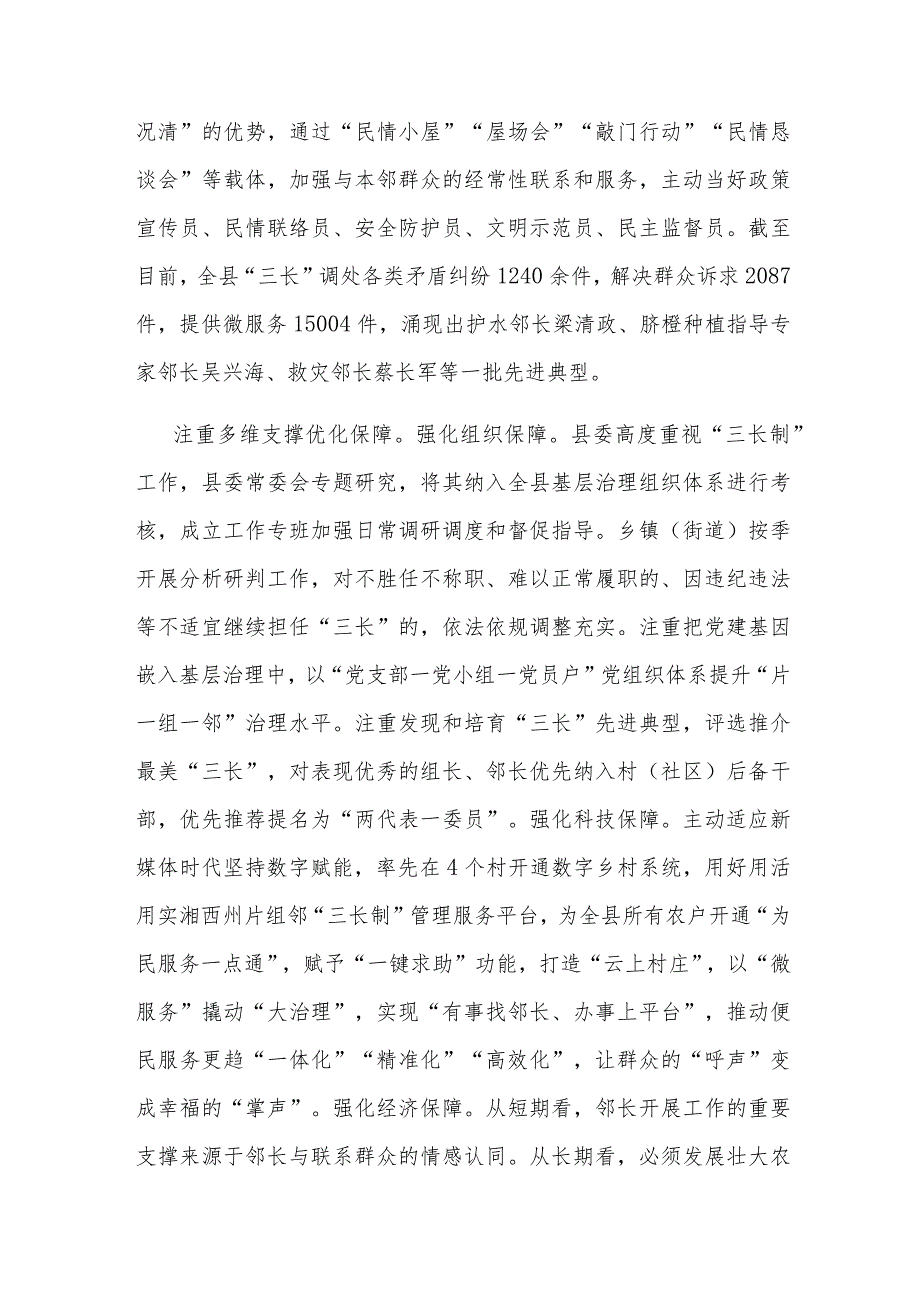 况清”的优势，通过“民情小屋”“屋场会”“敲门行动”“民情恳
谈会”等载体，加强与本邻群众的经常性联系和服务，主动当好政策
宣传员、民情联络员、安全防护员、文明示范员、民主监督员。截至
目前，全县“三长”调处各类矛盾纠纷 1240 余件，解决群众诉求 2087
件，提供微服务 15004 件，涌现出护水邻长梁清政、脐橙种植指导专
家邻长吴兴海、救灾邻长蔡长军等一批先进典型。
注重多维支撑优化保障。强化组织保障。县委高度重视“三长制”
工作，县委常委会专题研究，将其纳入全县基层治理组织体系进行考
核，成立工作专班加强日常调研调度和督促指导。乡镇（街道）按季
开展分析研判工作，对不胜任不称职、难以正常履职的、因违纪违法
等不适宜继续担任“三长”的，依法依规调整充实。注重把党建基因
嵌入基层治理中，以“党支部一党小组一党员户”党组织体系提升“片
一组一邻”治理水平。注重发现和培育“三长”先进典型，评选推介
最美“三长”，对表现优秀的组长、邻长优先纳入村（社区）后备干
部，优先推荐提名为“两代表一委员”。强化科技保障。主动适应新
媒体时代坚持数字赋能，率先在 4 个村开通数字乡村系统，用好用活
用实湘西州片组邻“三长制”管理服务平台，为全县所有农户开通“为
民服务一点通”，赋予“一键求助”功能，打造“云上村庄”，以“微
服务”撬动“大治理”，实现“有事找邻长、办事上平台”，推动便
民服务更趋“一体化”“精准化”“高效化”，让群众的“呼声”变
成幸福的“掌声”。强化经济保障。从短期看，邻长开展工作的重要
支撑来源于邻长与联系群众的情感认同。从长期看，必须发展壮大农